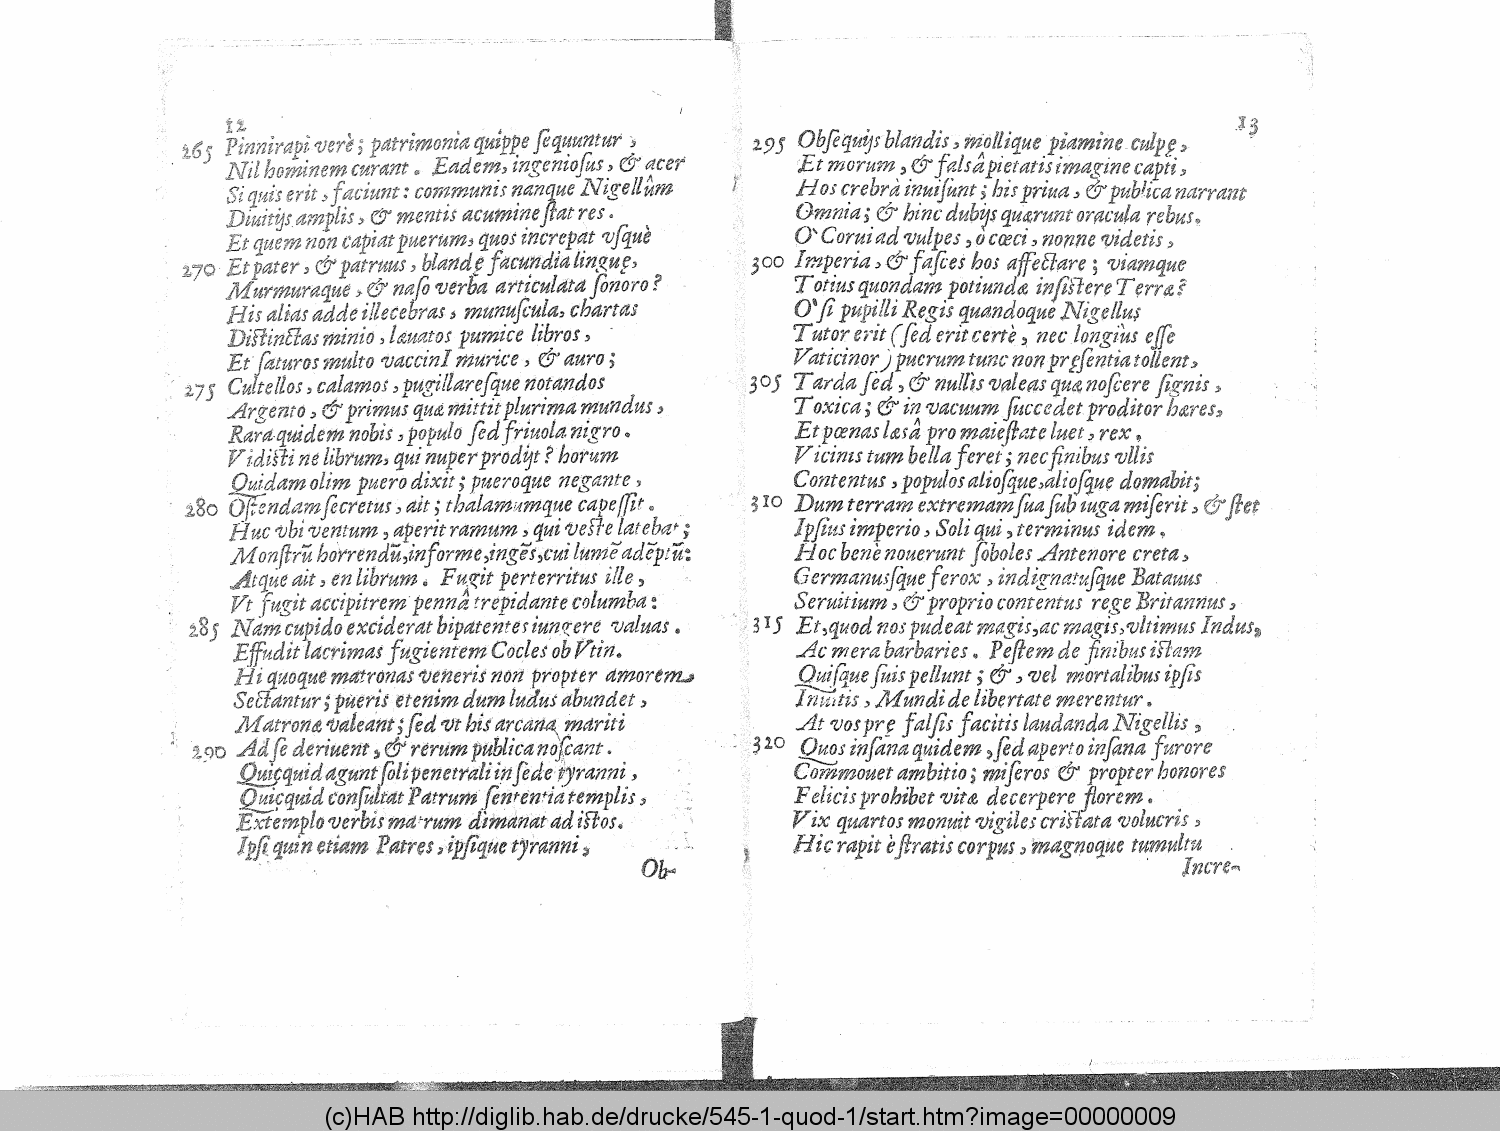 12
265 Pinnirapi verè; patrimonia quippe ſequuntur,
Nil hominem curant. Eadem, ingenioſus, & acer
Si quis erit, faciunt: communis nanque Nigellûm
Diuitijs amplis, & mentis acumine ſtat res.
Et quem non capiat puerum, quos increpat vſquè
270 Et pater, & patruus, blandę facundia linguę,
Murmuraque, & naſo verba articulata ſonoro?
His alias adde illecebras, munuſcula, chartas
Diſtinctas minio, læuatos pumice libros,
Et ſaturos multo vaccinI murice, & auro;
275 Cultellos, calamos, pugillareſque notandos
Argento, & primus quæ mittit plurima mundus,
Rara quidem nobis, populo ſed friuola nigro.
Vidiſti ne librum, qui nuper prodijt? horum
Quidam olim puero dixit; pueroque negante,
280 Oſtendam ſecretus, ait; thalamumque capeſſit.
Huc vbi ventum, aperit ramum, qui veſte latebat;
Monſtrũ horrendũ,informe,ingẽs,cui lumẽ adẽptũ:
Atque ait, en librum. Fugit perterritus ille,
Vt fugit accipitrem pennâ trepidante columba:
285 Nam cupido exciderat bipatentes iungere valuas.
Effudit lacrimas fugientem Cocles ob Vtin.
Hi quoque matronas veneris non propter amorem
Sectantur; pueris etenim dum ludus abundet,
Matronæ valeant; ſed vt his arcana mariti
290 Ad ſe deriuent, & rerum publica noſcant.
Quicquid agunt ſoli penetrali in ſede tyranni,
Quicquid conſultat Patrum ſententia templis,
Extemplo verbis matrum dimanat ad iſtos.
Ipſi quin etiam Patres, ipſique tyranni,
Ob-
13
295 Obſequijs blandis, mollique piamine culpę,
Et morum, & falsâ pietatis imagine capti,
Hos crebrà inuiſunt; his priua, & publica narrant
Omnia; & hinc dubijs quærunt oracula rebus.
O` Corui ad vulpes, ò cœci, nonne videtis,
300 Imperia, & faſces hos affectare; viamque
Totius quondam potiundæ inſiſtere Terræ?
O` ſi pupilli Regis quandoque Nigellus
Tutor erit (ſed erit certè, nec longiùs eſſe
Vaticinor) puerum tunc non pręſentia tollent,
305 Tarda ſed, & nullis valeas quæ noſcere ſignis,
Toxica; & in vacuum ſuccedet proditor hæres,
Et pœnas læsâ pro maieſtate luet, rex.
Vicinis tum bella feret; nec finibus vllis
Contentus, populos alioſque,alioſque domabit;
310 Dum terram extremam ſua ſub iuga miſerit, & ſtet
Ipſius imperio, Soli qui, terminus idem.
Hoc benè nouerunt ſoboles Antenore creta,
Germanuſque ferox, indignatuſque Batauus
Seruitium, & proprio contentus rege Britannus,
315 Et,quod nos pudeat magis,ac magis,vltimus Indus,
Ac mera barbaries. Peſtem de finibus iſtam
Quiſque ſuis pellunt; &, vel mortalibus ipſis
Inuitis, Mundi de libertate merentur.
At vos prę falſis facitis laudanda Nigellis,
320 Quos inſana quidem,ſed aperto inſana furore
Commouet ambitio; miſeros & propter honores
Felicis prohibet vitæ decerpere florem.
Vix quartos monuit vigiles criſtata volucris,
Hic rapit è ſtratis corpus, magnoque tumultu
Incre-
(c)HAB http://diglib.hab.de/drucke/545-1-quod-1/start.htm?image=00000009